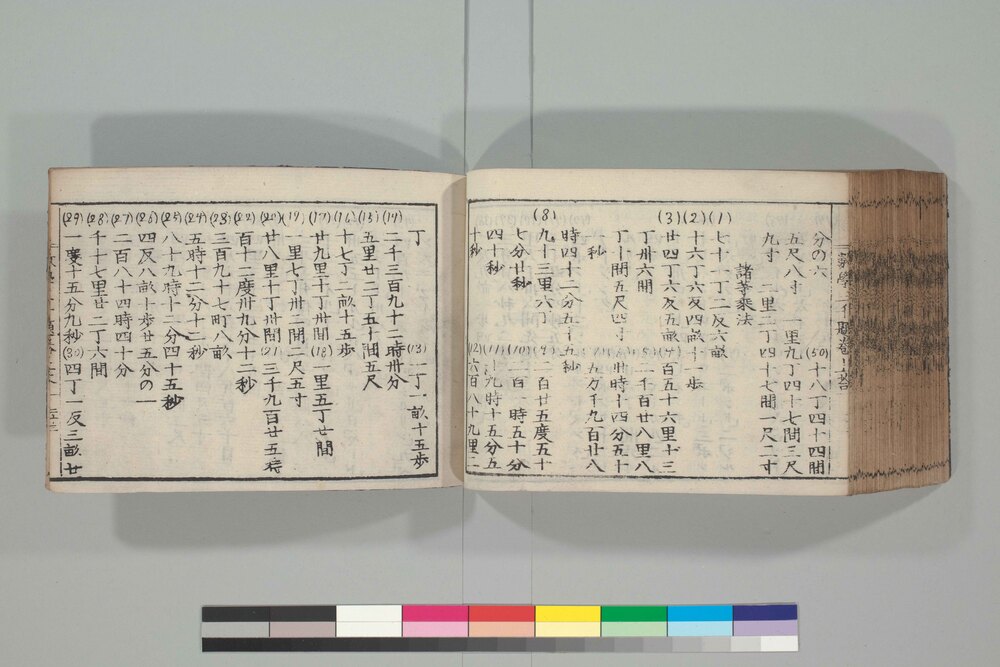 分の六 (50)十八丁四十四間
五尺八寸 一里九丁四十七間三尺
九寸 二里二丁四十七間一尺二寸
諸等乘法
(1) 七十一丁二反六畝
(2) 十六丁六反四畝十一歩
(3) 廿四丁六反五畝 (4) 百五十六里十三
丁卅六間 (5) 二千百廿八里八
丁十間五尺四寸 (6) 卅時十四分五十
秒 (7) 五万千九百廿八
時四十二分五十五秒
(8) 九十三里六丁 (9) 一百廿五度五十
七分廿秒 (10) 一百一時五十分
四十秒 (11) 九時十五分五
十秒 (12) 六百八十九里二
丁 (13) 二丁一畝十五歩
(14) 二千三百九十二時卅分
(15) 五里廿二丁五十間五尺
(16) 十七丁二畝十五歩
(17) 廿九里十丁卅間 (18) 一里五丁廿間
(19) 一里七丁卅二間二尺五寸
(20) 廿八里十丁卅間 (21) 三千九百廿五
(22) 百十二度卅九分十二秒
(23) 三百九十七町八畝
(24) 五時十二分十二秒
(25) 八十九時十二分四十五秒
(26) 四反八畝十歩廿五分の一
(27) 二百八十四時四十分
(28) 千十七里廿二丁六間
(29) 一度十五分九秒 (30) 四丁一反三畝廿